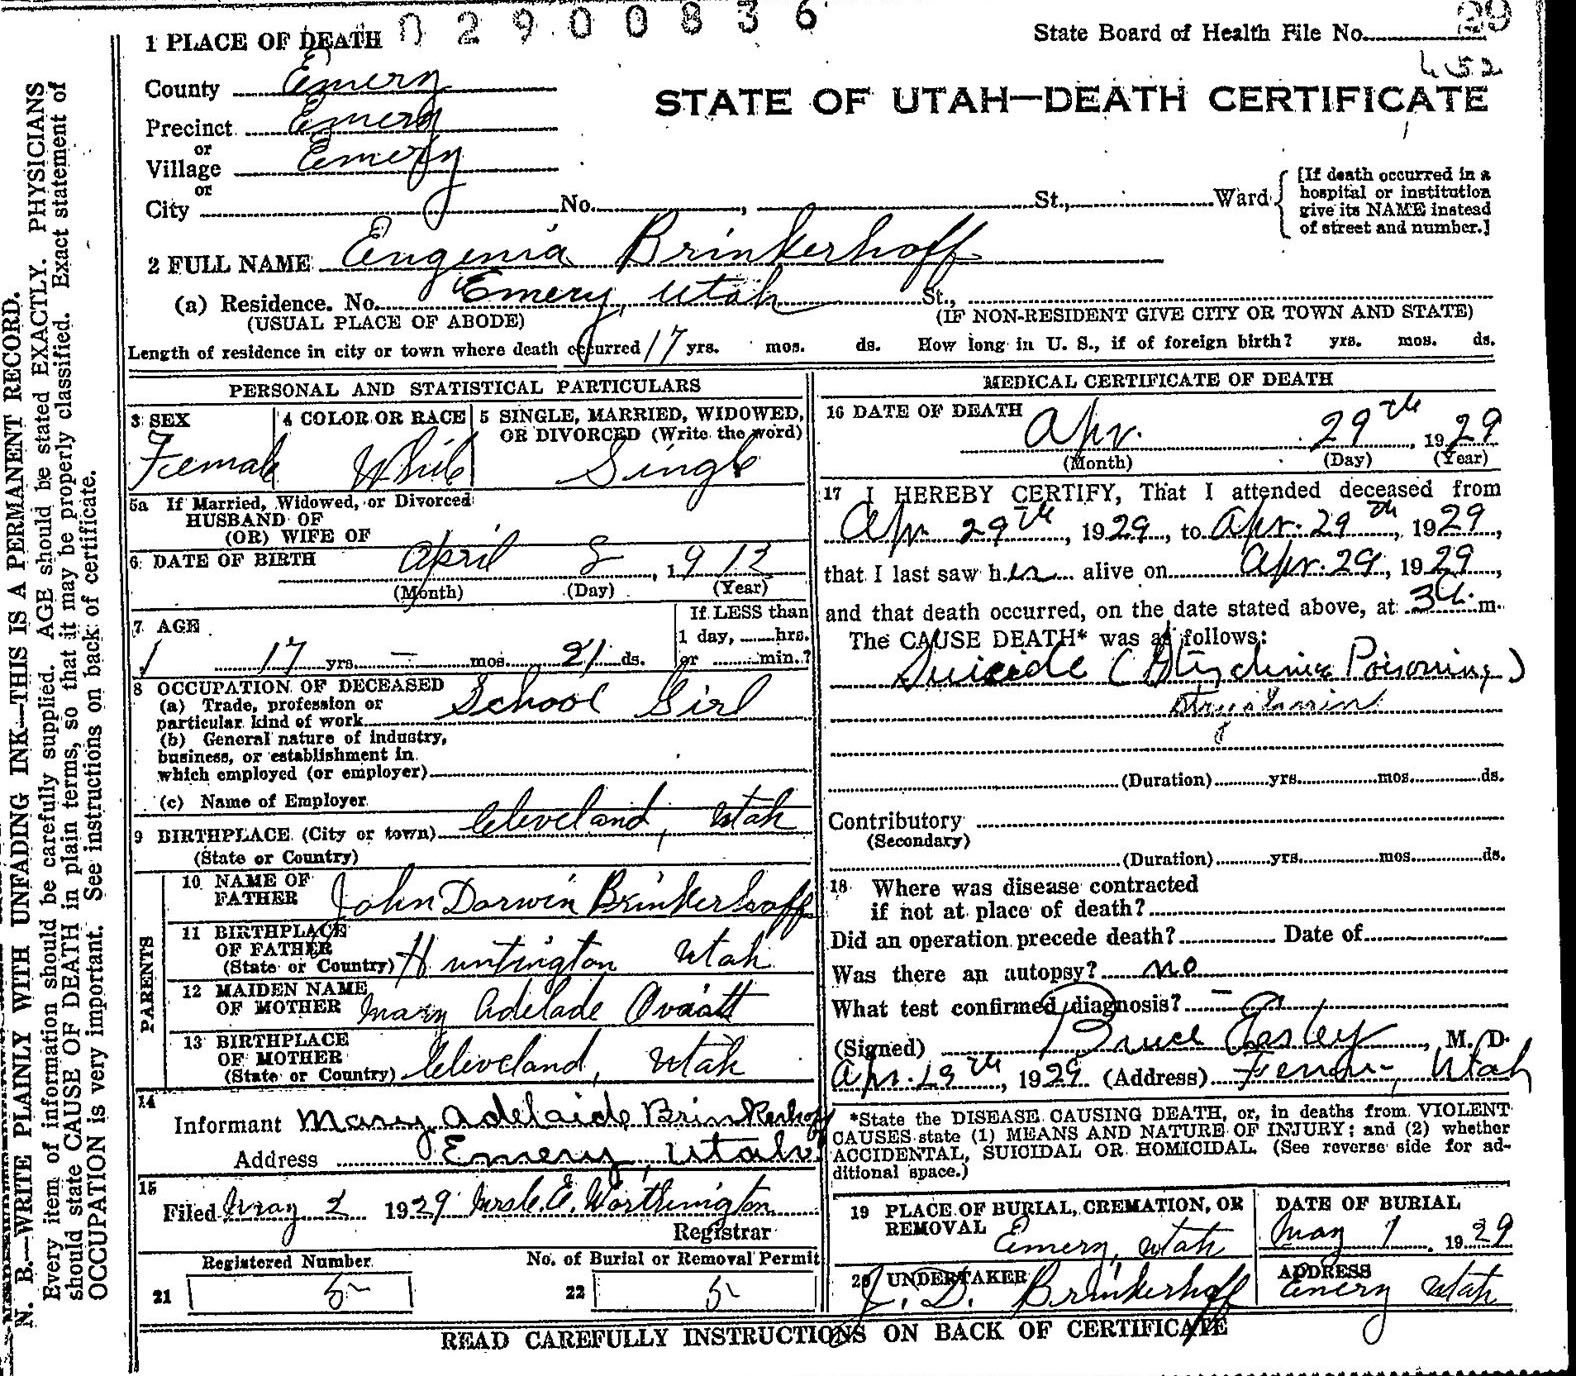 02900836
State Board of Health File No. 29
452
1 PLACE OF DEATH
County Emery
STATE OF UTAH—DEATH CERTIFICATE
Precinct Emery
or
Village Emery
or
City No. , St., Ward
[If death occurred in a
hospital or institution
give its NAME instead
of street and number.]
2 FULL NAME Eugenia Brinkerhoff
(a) Residence. No. Emery, Utah St.,
(USUAL PLACE OF ABODE) (IF NON-RESIDENT GIVE CITY OR TOWN AND STATE)
Length of residence in city or town where death occurred 17 yrs. mos. ds. How long in U. S., if of foreign birth? yrs. mos. ds.
PERSONAL AND STATISTICAL PARTICULARS
3 SEX 4 COLOR OR RACE 5 SINGLE, MARRIED, WIDOWED,
OR DIVORCED (Write the word)
Female White Single
5a If Married, Widowed, or Divorced
HUSBAND OF
(OR) WIFE OF
6 DATE OF BIRTH April 8, 1912
(Month) (Day) (Year)
7 AGE If LESS than
1 day, hrs.
17 yrs. — mos. 21 ds. or min.?
8 OCCUPATION OF DECEASED
(a) Trade, profession or
particular kind of work School Girl
(b) General nature of industry,
business, or establishment in
which employed (or employer)
(c) Name of Employer
9 BIRTHPLACE (City or town) Cleveland, Utah
(State or Country)
PARENTS
10 NAME OF
FATHER John Darwin Brinkerhoff
11 BIRTHPLACE
OF FATHER
(State or Country) Huntington Utah
12 MAIDEN NAME
OF MOTHER Mary Adelade Oviatt
13 BIRTHPLACE
OF MOTHER
(State or Country) Cleveland, Utah
14
Informant Mary Adelaide Brinkerhoff
Address Emery, Utah
15
Filed May 2 1929 Mrs. C. E. Worthington
Registrar
Registered Number No. of Burial or Removal Permit
21 5 22 5
MEDICAL CERTIFICATE OF DEATH
16 DATE OF DEATH
Apr. 29th, 1929
(Month) (Day) (Year)
17 I HEREBY CERTIFY, That I attended deceased from
Apr. 29th, 1929, to Apr. 29th, 1929,
that I last saw her alive on Apr. 29, 1929,
and that death occurred, on the date stated above, at m.
The CAUSE DEATH* was as follows:
Suicide (Strychnine Poisoning)
(Duration) yrs. mos. ds.
Contributory
(Secondary)
(Duration) yrs. mos. ds.
18 Where was disease contracted
if not at place of death?
Did an operation precede death? Date of
Was there an autopsy? no
What test confirmed diagnosis? —
(Signed) Bruce Easley, M. D.
Apr. 29th, 1929 (Address) Ferron, Utah
*State the DISEASE CAUSING DEATH, or, in deaths from VIOLENT
CAUSES state (1) MEANS AND NATURE OF INJURY; and (2) whether
ACCIDENTAL, SUICIDAL OR HOMICIDAL. (See reverse side for ad-
ditional space.)
19 PLACE OF BURIAL, CREMATION, OR
REMOVAL
Emery, Utah
DATE OF BURIAL
May 1, 1929
20 UNDERTAKER
J. D. Brinkerhoff
ADDRESS
Emery Utah
READ CAREFULLY INSTRUCTIONS ON BACK OF CERTIFICATE
N. B.—WRITE PLAINLY WITH UNFADING INK—THIS IS A PERMANENT RECORD.
Every item of information should be carefully supplied. AGE should be stated EXACTLY. PHYSICIANS
should state CAUSE OF DEATH in plain terms, so that it may be properly classified. Exact statement of
OCCUPATION is very important. See instructions on back of certificate.